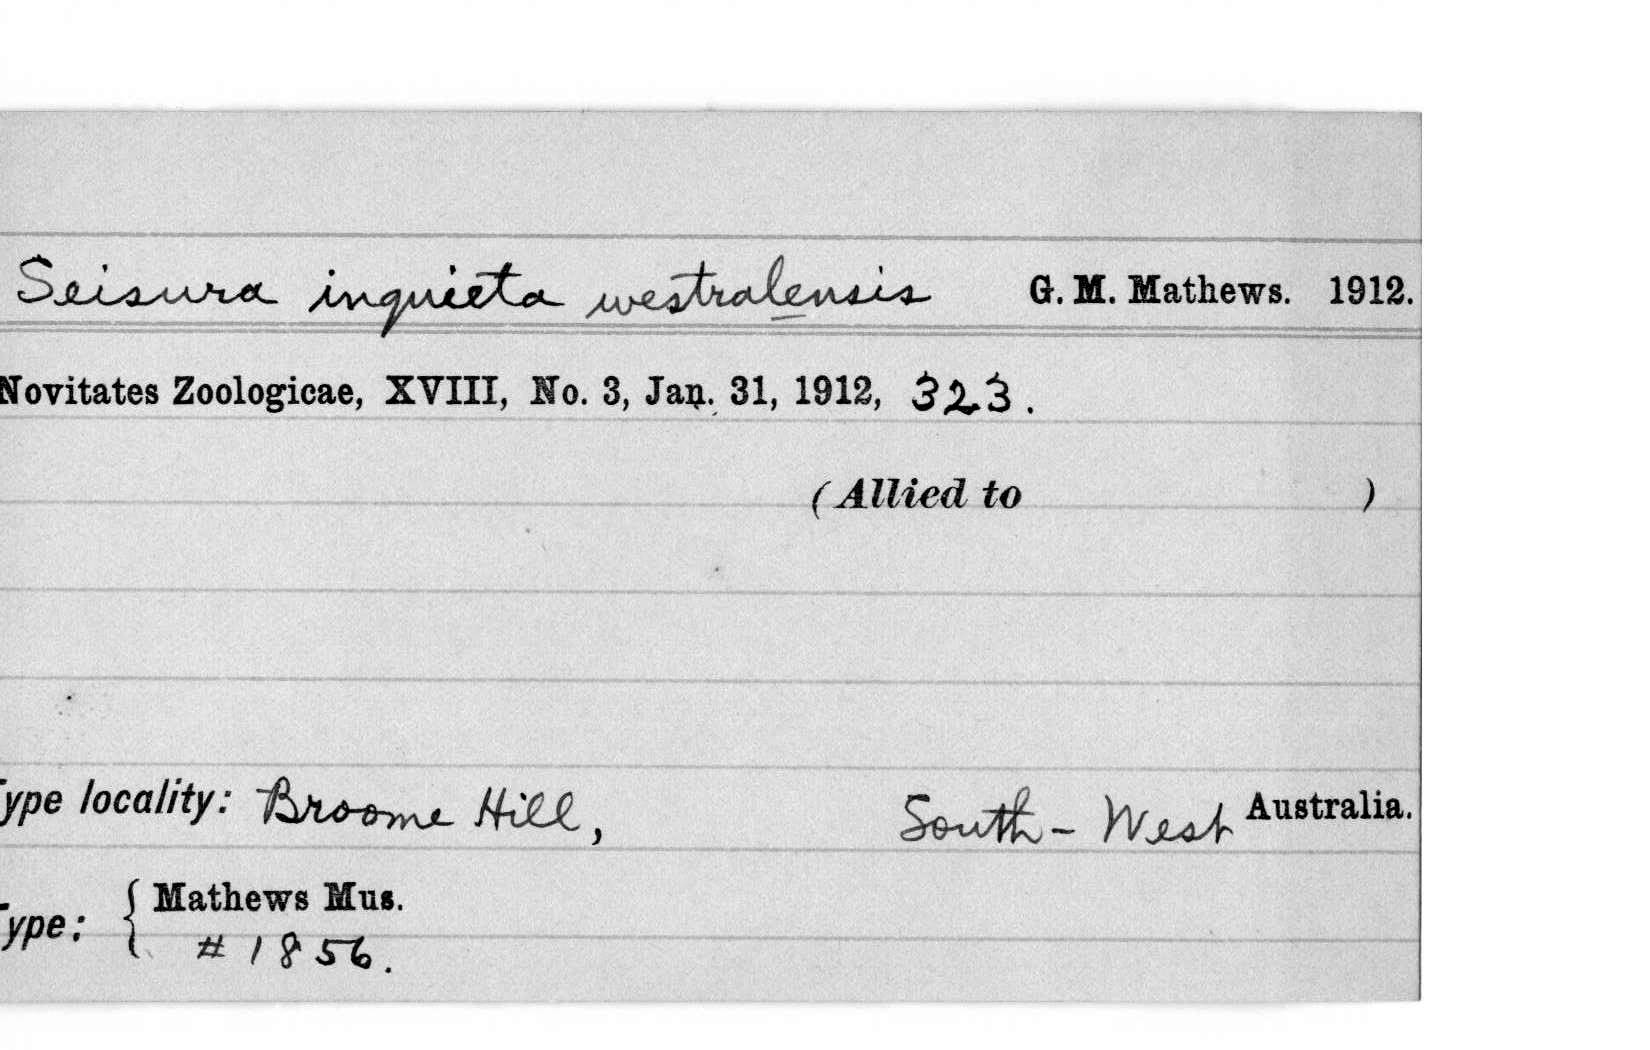 Seisura inquieta westralensis G. M. Mathews. 1912.
Novitates Zoologicae, XVIII, No. 3, Jan. 31, 1912, 323.
(Allied to )
Type locality: Broome Hill, South-West Australia.
Type: { Mathews Mus.
# 1856.